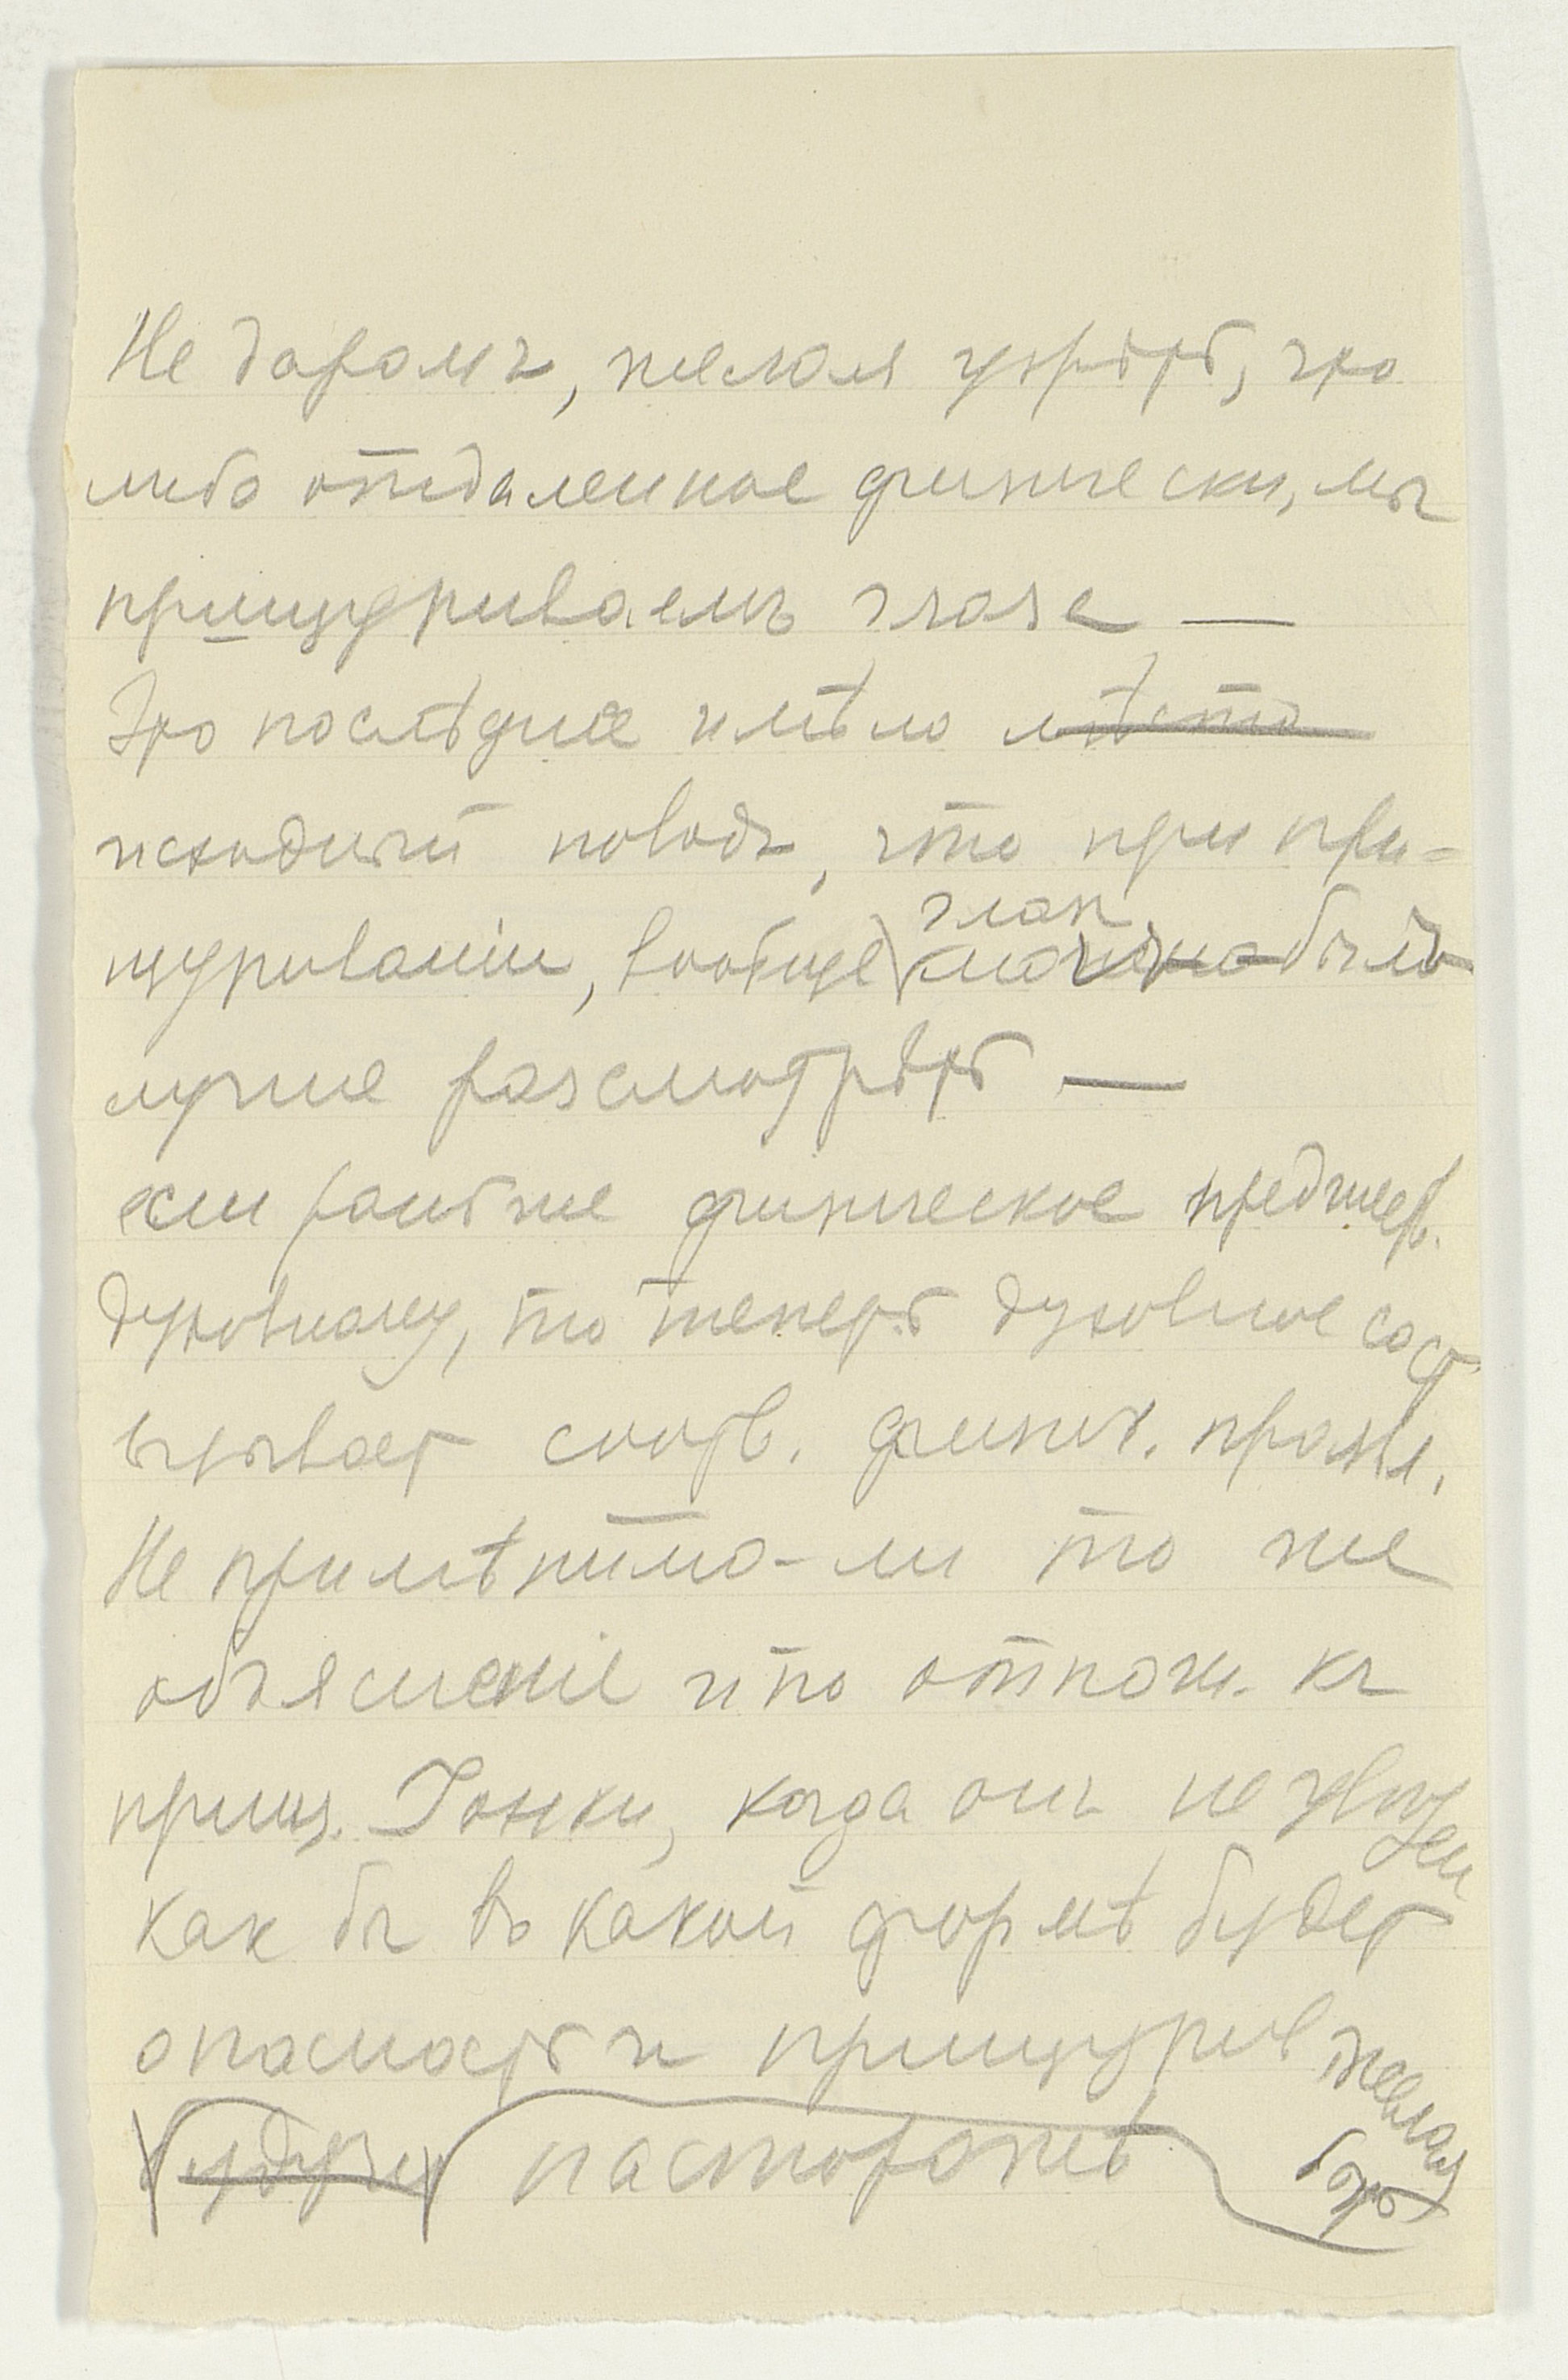 Не даромъ, желая узрѣть, что
либо отдаленное физически, мы
прищуриваемъ глаза —
Это последнее имѣло мѣсто
исходный поводъ, что при при-
щуриваніи, вообще глаз. можно было
лучше разсмотрѣть —
если раньше физическое предшест.
духовному, то теперь духовное сост.
вызывает соотв. физич. прояв.
Не примѣнимо-ли то же
объясненіе и по отнош. къ
прищ. Гонки, когда онъ не увѣрен
как бы въ какой формѣ будет
опасность и прищурив желая
будучи насторожѣ быть